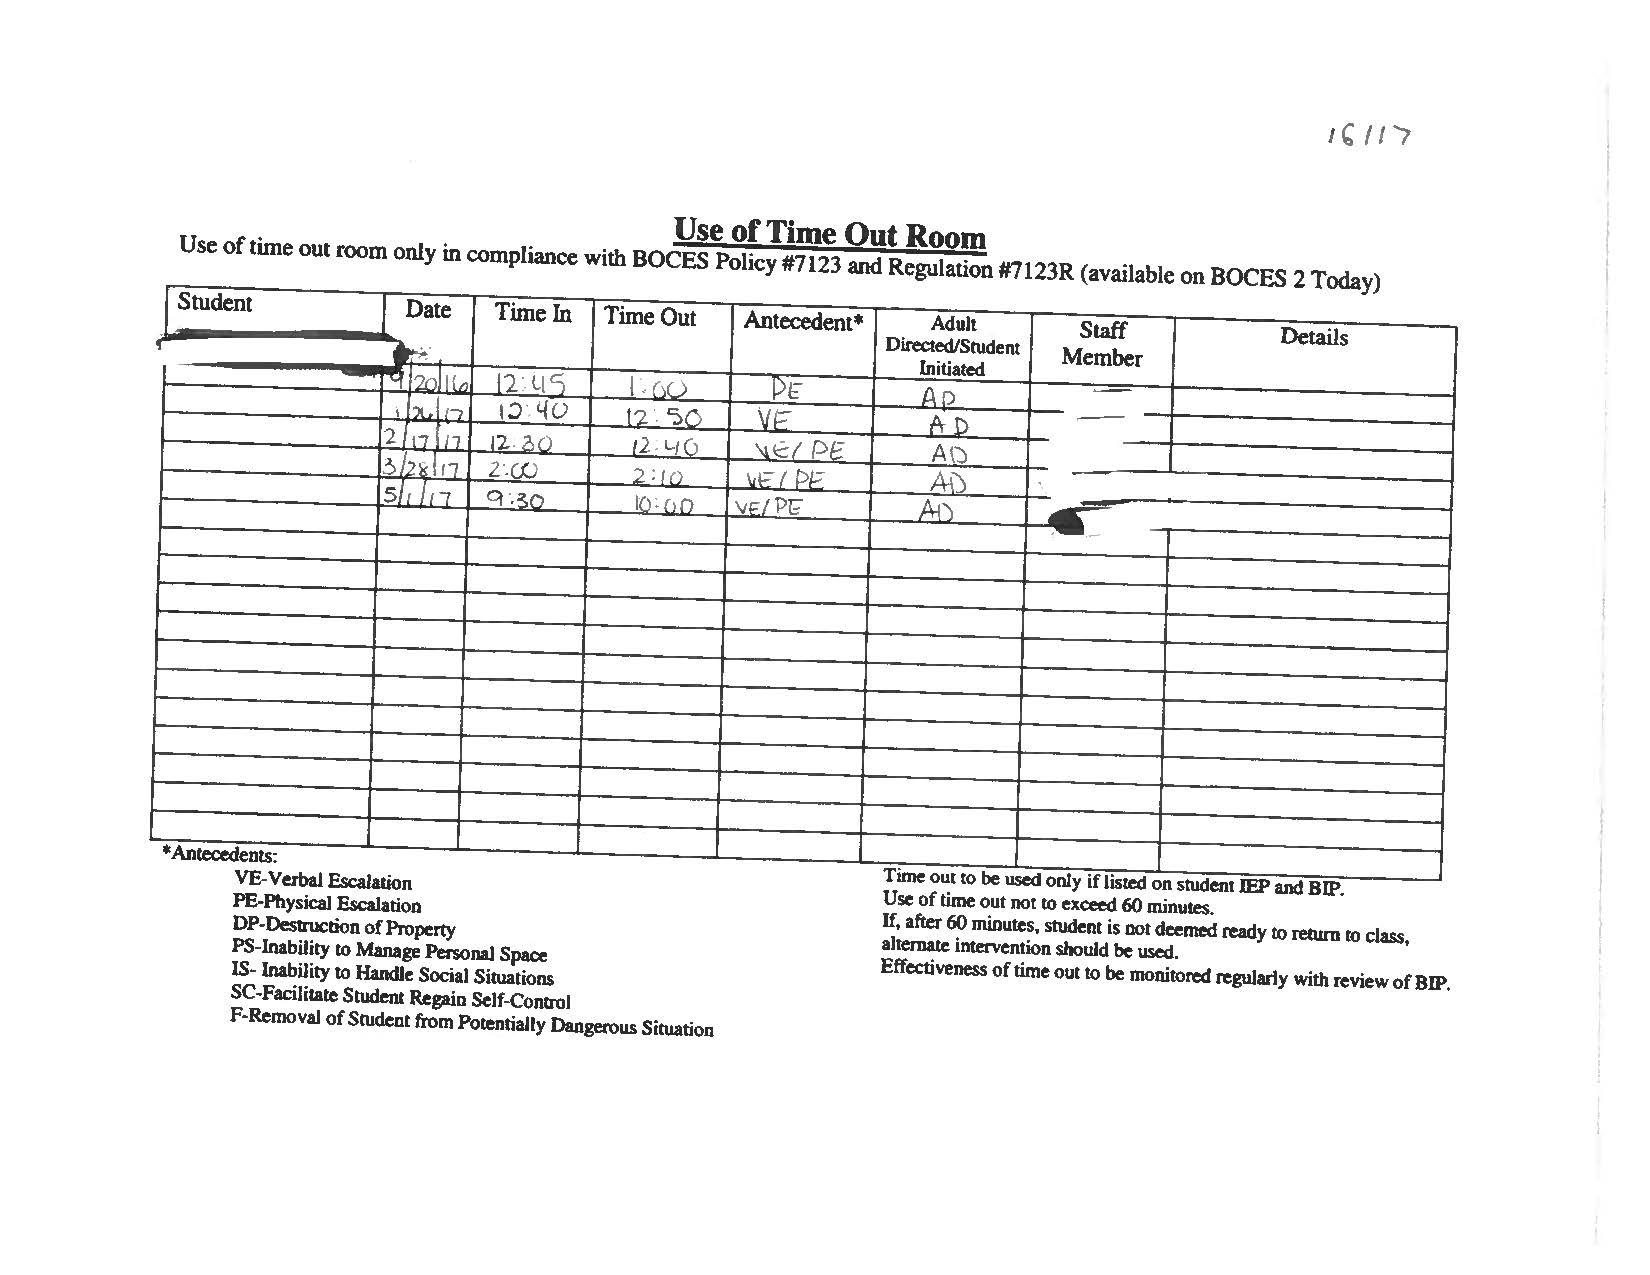 16/17
Use of Time Out Room
Use of time out room only in compliance with BOCES Policy #7123 and Regulation #7123R (available on BOCES 2 Today)
Student Date Time In Time Out Antecedent* Adult Directed/Student Initiated Staff Member Details
9/20/16 12:45 1:00 PE AD
1/26/17 12:40 12:50 VE AD
2/17/17 12:30 12:40 VE/PE AD
3/28/17 2:00 2:10 VE/PE AD
5/1/17 9:30 10:00 VE/PE AD
*Antecedents:
VE-Verbal Escalation
PE-Physical Escalation
DP-Destruction of Property
PS-Inability to Manage Personal Space
IS- Inability to Handle Social Situations
SC-Facilitate Student Regain Self-Control
F-Removal of Student from Potentially Dangerous Situation
Time out to be used only if listed on student IEP and BIP.
Use of time out not to exceed 60 minutes.
If, after 60 minutes, student is not deemed ready to return to class,
alternate intervention should be used.
Effectiveness of time out to be monitored regularly with review of BIP.